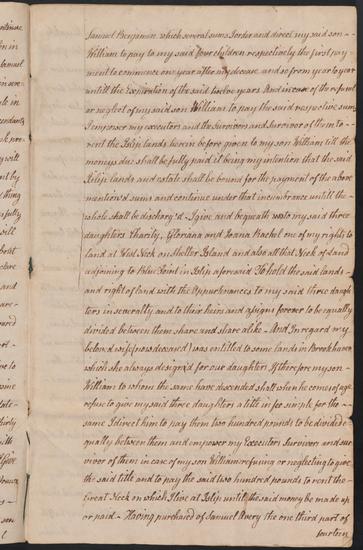 Samuel Benjamin which several sums I order and direct my said son
William to pay to my said four children respectively the first pay
ment to commence one year after my decease and so from year to year
untill the Expiration of the said twelve years And in case of the refusal
or neglect of my said son William to pay the said respective sums
I empower my executors and the Survivors and Survivor of them to
rent the Islip lands herein before given to my son William till the
moneys due shall be fully paid it being my intention that the said
Islip lands and estate shall be bound for the payment of the above
mention'd sums and continue under that incumbrance untill the
whole shall be discharg'd. I give and bequeath unto my said three
daughters Charity, Gloriana and Joana Rachel one of my rights to
land at Neck on Shelter Island and also all that Neck of Land
adjoining to Blue Point in Islip aforesaid To hold the said lands
and right of land with the Appurtenances to my said three daugh
ters in severalty and to their heirs and assigns forever to be equally
divided between them share and share alike – And In regard my
beloved wife (now deceased) was entitled to some lands in Brookhaven
which she always design'd for our daughters If therefore my son
William to whom the same have descended shall when he comes of age
refuse to give my said three daughters a title in fee simple for the
same I direct him to pay them two hundred pounds to be divided e
qually between them and empower my Executors Survivors and sur
vivor of them in case of my son William refusing or neglecting to give
the said title and to pay the said two hundred pounds to rent the
Great Neck on which I live at Islip untill the said money be made up
or paid – Having purchased of Samuel Avery the one third part of
fourteen